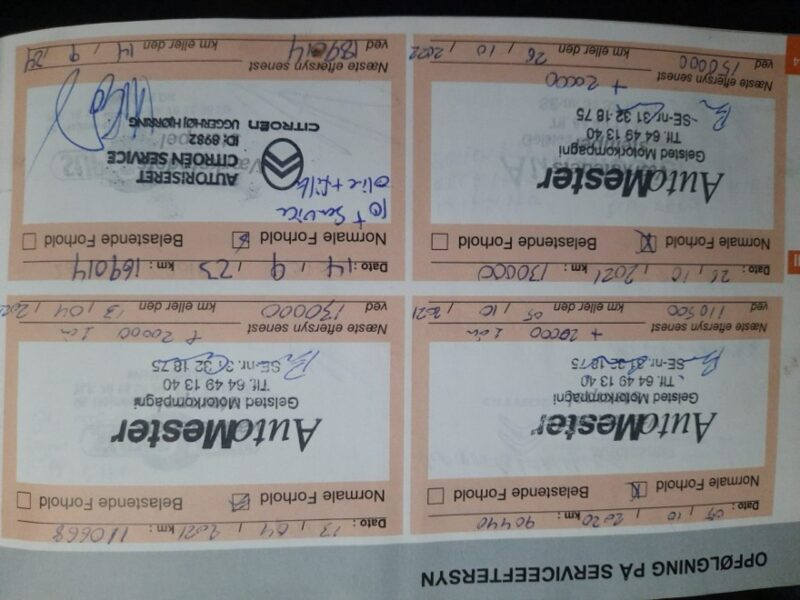 OPFØLGNING PÅ SERVICEEFTERSYN
Dato : 05 / 10 / 2020 km : 90440
Normale Forhold Belastende Forhold
AutoMester
Gelsted Motorkompagni
Tlf. 64 49 13 40
SE-nr. 31 32 18 75
+ 20000 1 år
Næste eftersyn senest
ved 110500 km eller den 05 / 10 / 2021
Dato : 13 / 04 / 2021 km : 110668
Normale Forhold Belastende Forhold
AutoMester
Gelsted Motorkompagni
Tlf. 64 49 13 40
SE-nr. 31 32 18 75
+ 20000 1 år
Næste eftersyn senest
ved 130000 km eller den 13 / 04 /
Dato : 26 / 10 / 2021 km : 130000
Normale Forhold Belastende Forhold
AutoMester
Gelsted Motorkompagni
Tlf. 64 49 13 40
SE-nr. 31 32 18 75
+ 20000
Næste eftersyn senest
ved 150000 km eller den 26 / 10 / 2022
Dato : 14 / 9 / 23 km : 169014
Normale Forhold Belastende Forhold
+ Service
olie + filter
AUTORISERET
CITROËN SERVICE
ID: 8982
CITROËN UGGERHØJ HJØRRING
Næste eftersyn senest
ved 189014 km eller den 14 / 9 / 24